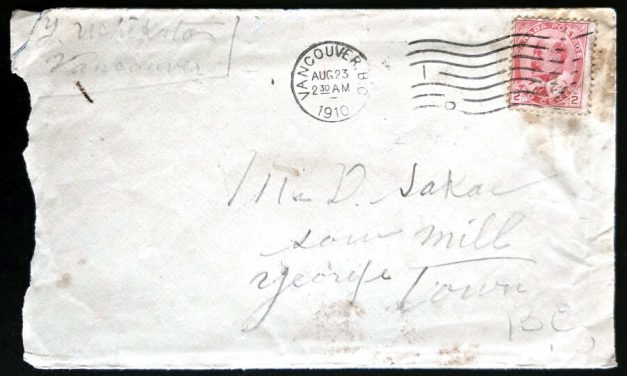 Vancouver
VANCOUVER, B.C.
AUG 23
2 30 AM
1910
CANADA POSTAGE
2 CENTS 2
Mr D. Sakae
saw mill
george Town
BC